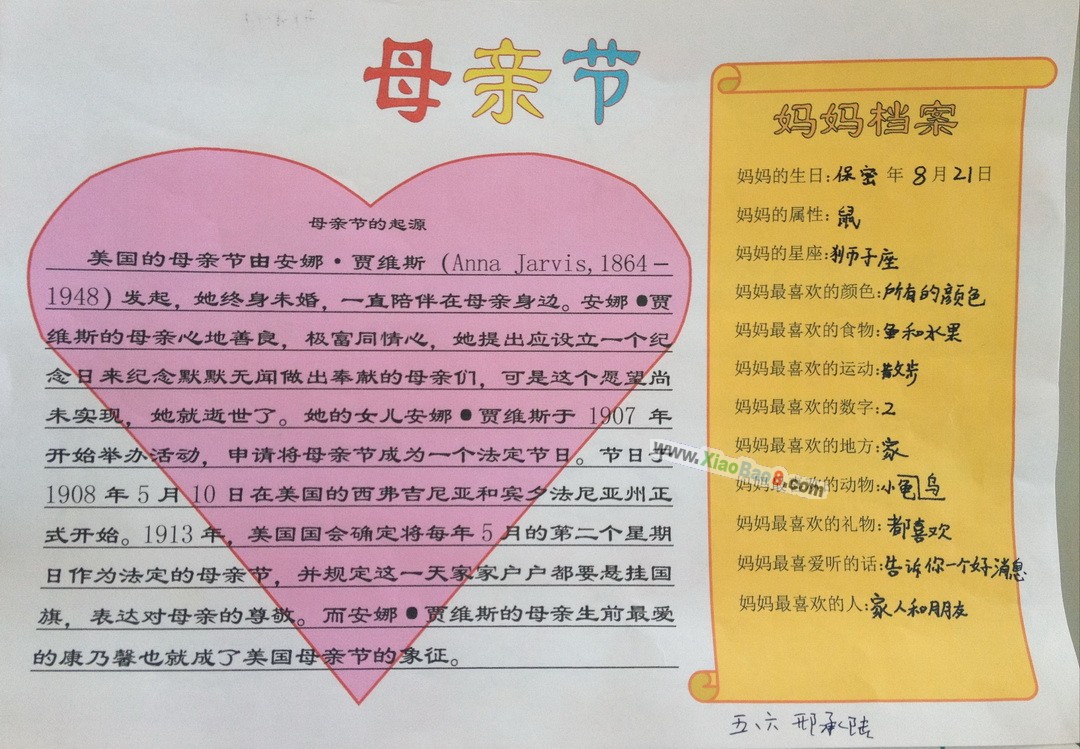 母亲节
母亲节的起源
美国的母亲节由安娜·贾维斯（Anna Jarvis,1864－
1948）发起，她终身未婚，一直陪伴在母亲身边。安娜●贾
维斯的母亲心地善良，极富同情心，她提出应设立一个纪
念日来纪念默默无闻做出奉献的母亲们，可是这个愿望尚
未实现，她就逝世了。她的女儿安娜●贾维斯于 1907 年
开始举办活动，申请将母亲节成为一个法定节日。节日于
1908 年 5 月 10 日在美国的西弗吉尼亚和宾夕法尼亚州正
式开始。1913 年，美国国会确定将每年 5 月的第二个星期
日作为法定的母亲节，并规定这一天家家户户都要悬挂国
旗，表达对母亲的尊敬。而安娜●贾维斯的母亲生前最爱
的康乃馨也就成了美国母亲节的象征。
妈妈档案
妈妈的生日:保密 年 8月21日
妈妈的属性: 鼠
妈妈的星座:狮子座
妈妈最喜欢的颜色:所有的颜色
妈妈最喜欢的食物:鱼和水果
妈妈最喜欢的运动:散步
妈妈最喜欢的数字:2
妈妈最喜欢的地方:家
www.XiaoBao8.com
妈妈最喜欢的动物:小龟
妈妈最喜欢的礼物:都喜欢
妈妈最喜爱听的话:告诉你一个好消息
妈妈最喜欢的人:家人和朋友
五、六 邢承陆